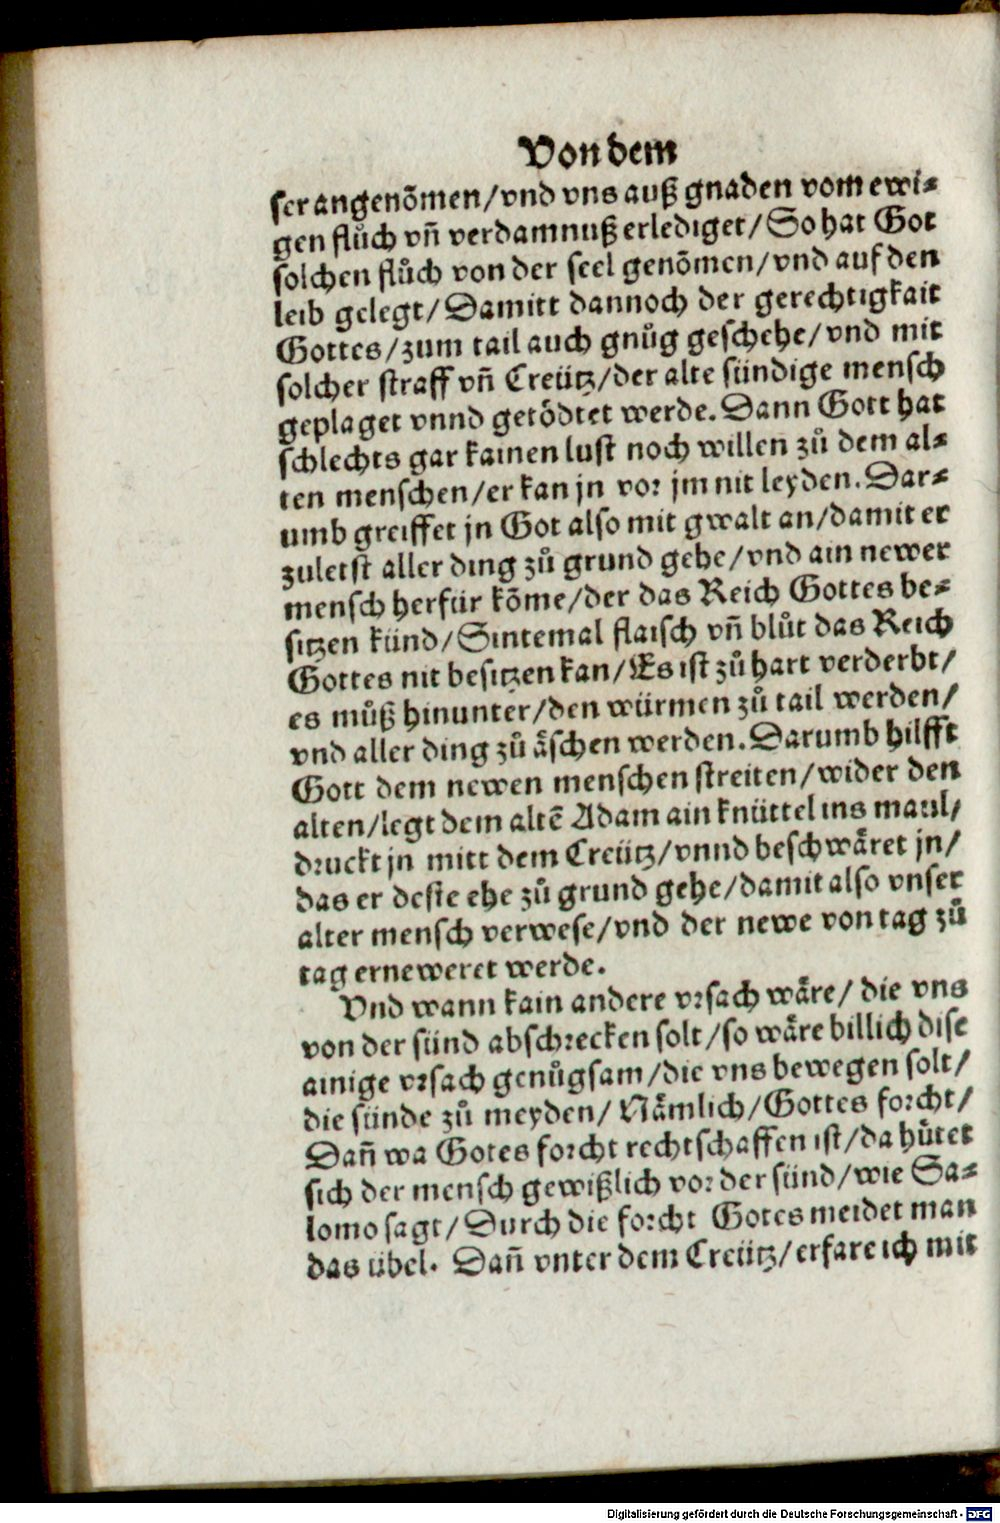 Von dem
ser angenõmen/vnd vns auß gnaden vom ewi⸗
gen flůch vñ verdamnuß erlediget/So hat Got
solchen flůch von der seel genõmen/vnd auf den
leib gelegt/Damitt dannoch der gerechtigkait
Gottes/zum tail auch gnůg geschehe/vnd mit
solcher straff vñ Creütz/der alte sündige mensch
geplaget vnnd getödtet werde. Dann Gott hat
schlechts gar kainen lust noch willen zů dem al⸗
ten menschen/er kan jn vor jm nit leyden. Dar⸗
umb greiffet jn Got also mit gwalt an/damit er
zuletst aller ding zů grund gehe/vnd ain newer
mensch herfür kõme/der das Reich Gottes be⸗
sitzen künd/Sintemal flaisch vñ blůt das Reich
Gottes nit besitzen kan/Es ist zů hart verderbt/
es můß hinunter/den würmen zů tail werden/
vnd aller ding zů äschen werden. Darumb hilfft
Gott dem newen menschen streiten/wider den
alten/legt dem altẽ Adam ain knüttel ins maul/
druckt jn mitt dem Creütz/vnnd beschwäret jn/
das er deste ehe zů grund gehe/damit also vnser
alter mensch verwese/vnd der newe von tag zů
tag erneweret werde.
Vnd wann kain andere vrsach wäre/ die vns
von der sünd abschrecken solt/so wäre billich dise
ainige vrsach genůgsam/die vns bewegen solt/
die sünde zů meyden/ Nämlich/Gottes forcht/
Dañ wa Gotes forcht rechtschaffen ist/da hütet
sich der mensch gewißlich vor der sünd/wie Sa⸗
lomo sagt/Durch die forcht Gotes meidet man
das übel. Dañ vnter dem Creütz/erfare ich mit
Digitalisierung gefördert durch die Deutsche Forschungsgemeinschaft - DFG